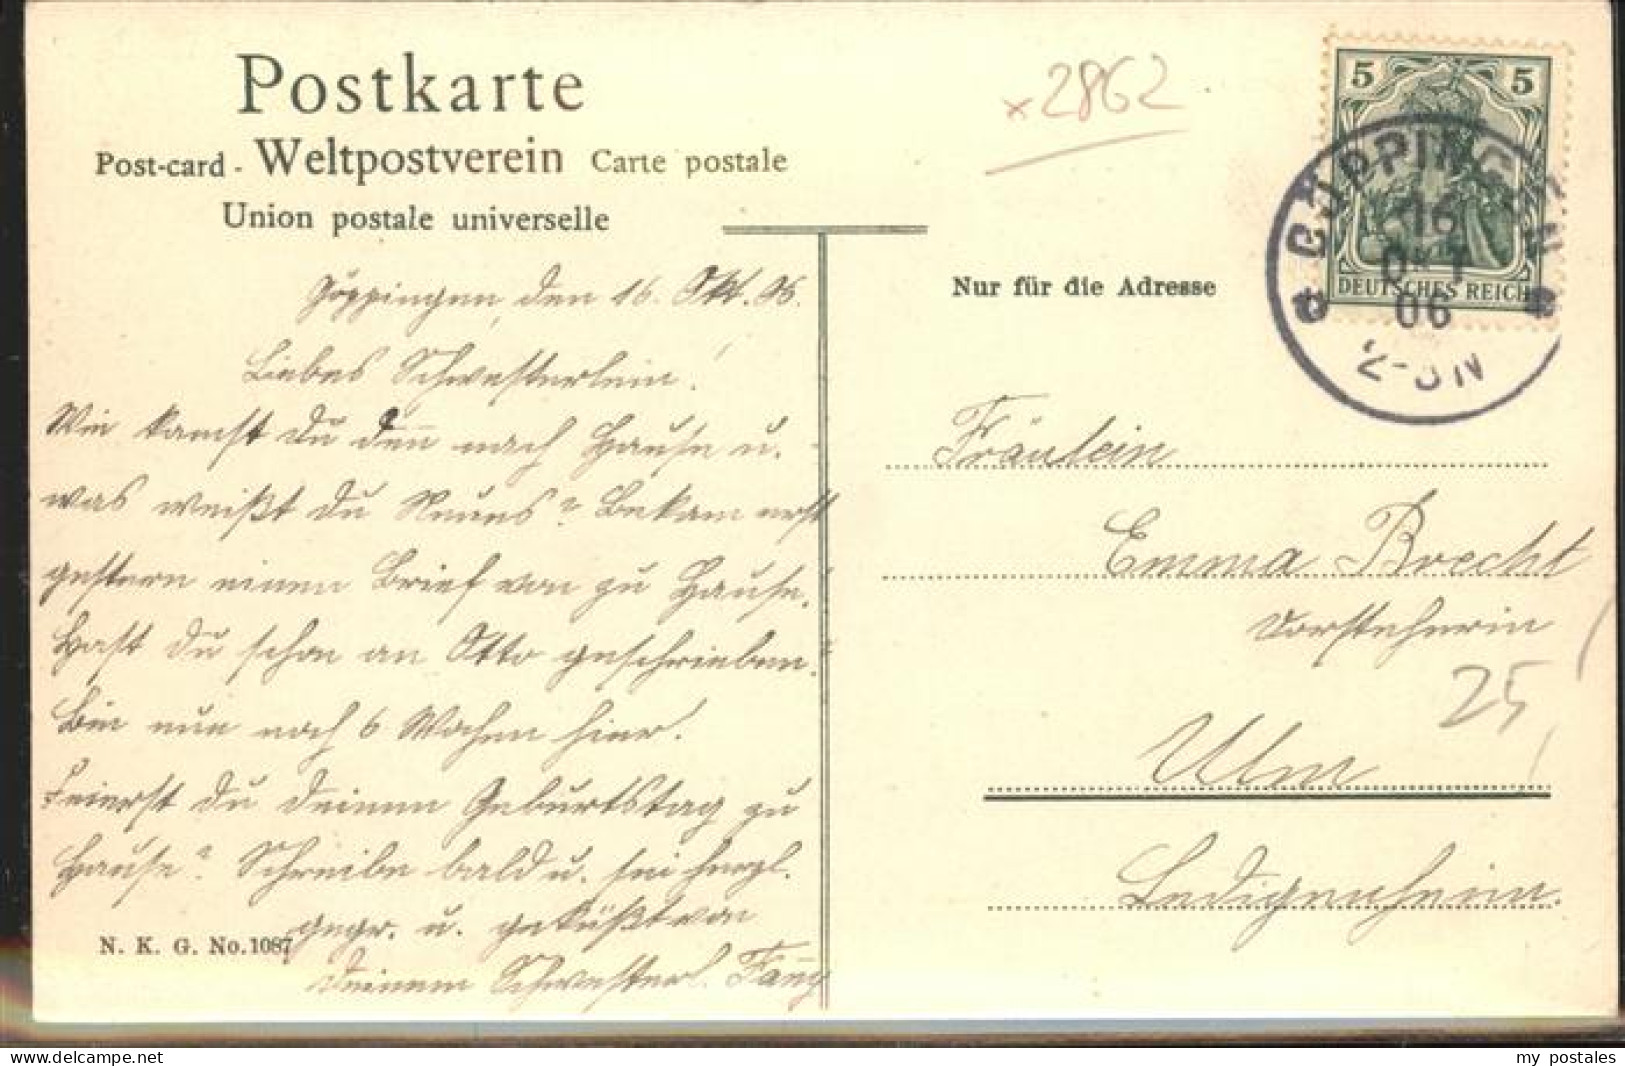 Postkarte
Post-card - Weltpostverein Carte postale
Union postale universelle
×2862
5 5
DEUTSCHES REICH
GÖPPINGEN
16
OKT
06
2-3N
Nur für die Adresse
Göppingen, den 16. Okt. 06.
Liebes Schwesterlein!
Wie kamst du denn nach Hause u.
was weißt du Neues? Bekam erst
gestern einen Brief von zu Hause.
Hast du schon an Otto geschrieben?
Bin nun noch 6 Wochen hier!
Feierst du deinen Geburtstag zu
Hause? Schreibe bald u. sei herzl.
gegr. u. geküßt von
deinem Schwesterl. Fanny
Fräulein
Emma Brecht
Vorsteherin
25
Ulm
Ledigenheim.
N. K. G. No. 1087
delcampe.net
my_postales